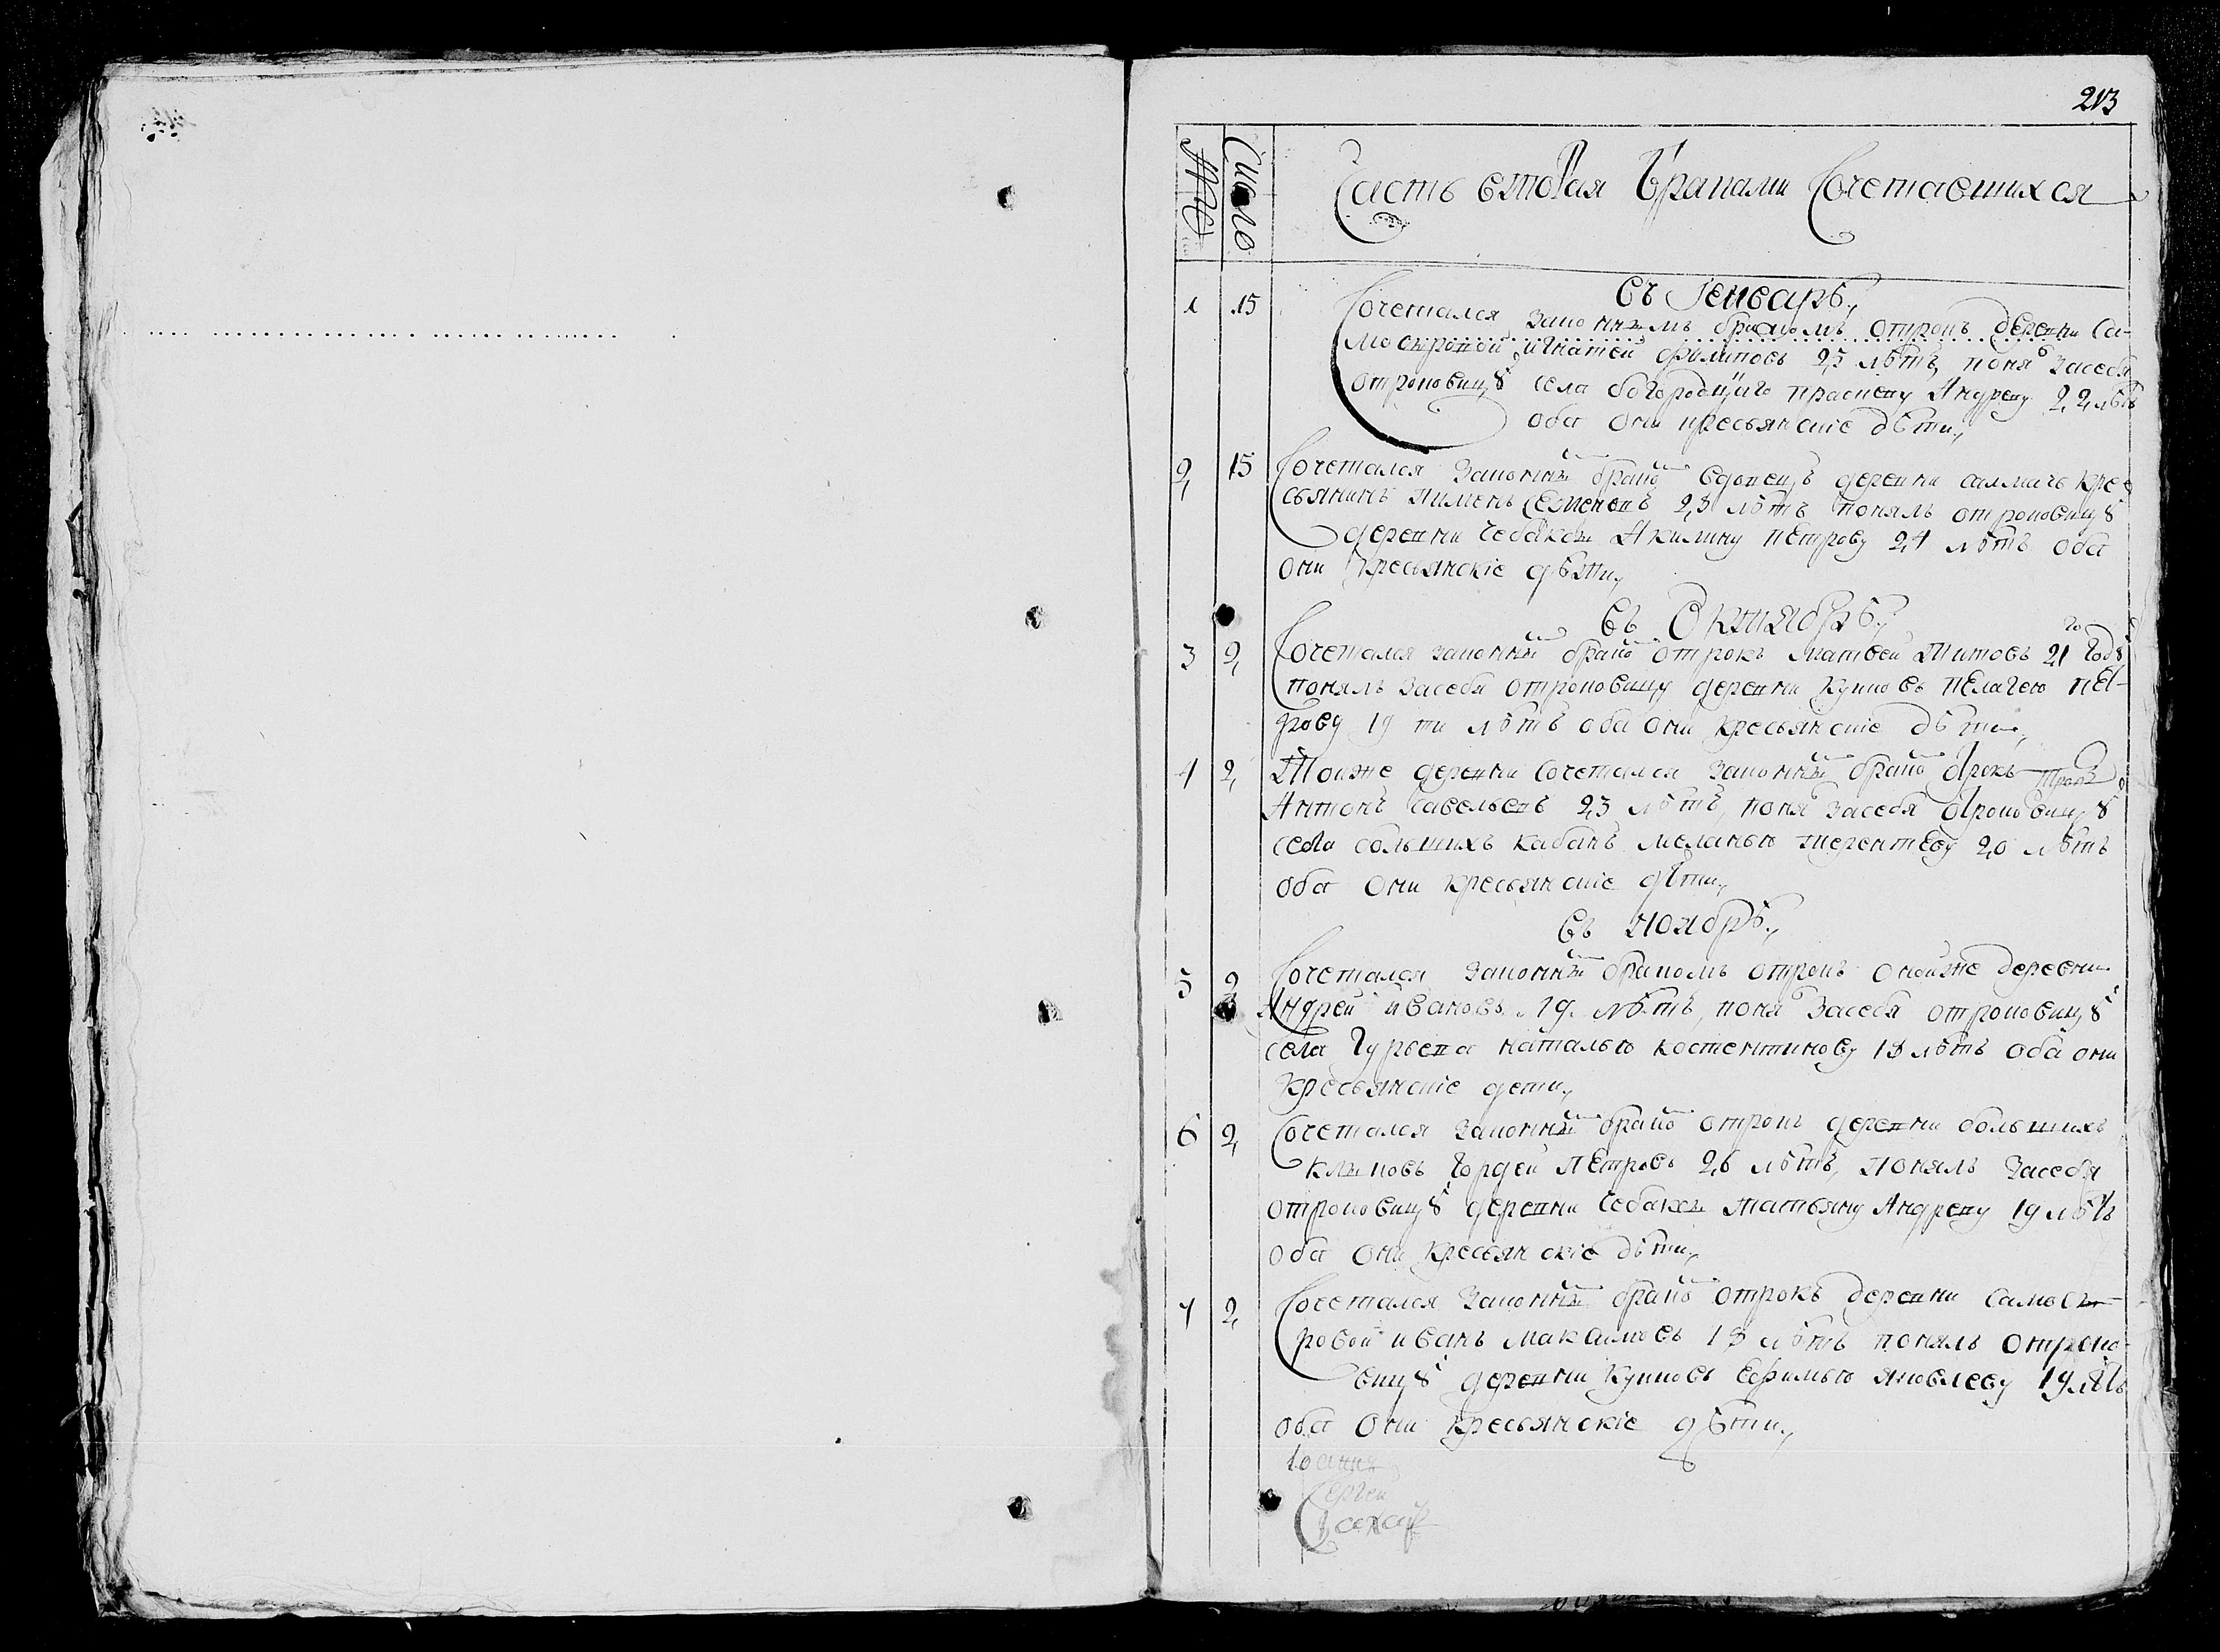 213
Число
Часть вторая браками сочетавшихся
въ Генварѣ
1 15 Сочетался законнымъ бракомъ отрокъ деревни Са-
мосыровой игнатей филиповъ 25 лѣтъ понялъ засебя
отроковицꙋ села богородцкго праскеву Андрееву 22 лѣтъ
оба они кресьянские дѣти
2 15 Сочетался законным браком вдовецъ деревни кре
сьянинъ пименъ Семеновъ 23 лѣтъ понялъ отроковицꙋ
деревни чебаксы Акилину петрову 24 лѣтъ оба
они кресьянскіе дѣти
въ Октиябрѣ
3 2 Сочетался законным браком отрокъ матвей Титовъ 21 годꙋ
понялъ засебя отроковицу деревни Куюковъ пелагею пет-
рову 19 ти лѣтъ оба они кресьянские дѣти
4 2 Тоиже деревни сочетался законным браком отрокъ
Антонъ савельевъ 23 лѣтъ поня засебя отроковицꙋ
села большихъ кабанъ меланью терентеву 20 лѣтъ
оба они кресьянские дѣти
въ ноябрѣ
5 2 Сочетался законным бракомъ отрокъ оноиже деревни
Андрей ивановъ 19 лѣтъ поня засебя отроковицꙋ
села гурьева наталью костентинову 18 лѣтъ оба они
кресьянские дети
6 2 Сочетался законным браком отрокъ деревни большихъ
гордей петровъ 26 лѣтъ понялъ засебя
отроковицꙋ деревни чебаксы татьяну Андрееву 19 лѣтъ
оба они кресьянскіе дѣти
7 2 Сочетался законным браком отрокъ деревни самосы-
ровой иванъ максимовъ 18 лѣтъ понялъ отроко-
вицꙋ деревни Куюковъ Ефимью яковлеву 19 лѣтъ
оба они кресьянскіе дѣти
Сергеи